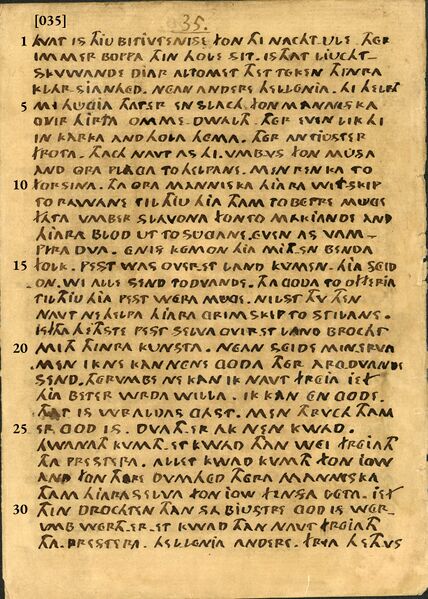 [035]
35.
1 HVAT IS THIU BITIVTENISE FON THI NACHTULE THER
IMMER BOPPA THIN HOLE SIT. IS THAT LIUCHT-
SKVWANDE DIAR ALTOMET THET TEKEN THINRA
KLARSIANHED. NEAN ANDERE HELLENIA. HI HELPT
5 MI HUGIA THAT ER EN SLACH FON MANNISKA
OVIR HIRTHA OMME DWALTH. THER EVEN LIK HI
IN KARKA AND HOLA HEMA. THER AN TIUSTER
FROTA. THACH NAVT AS HI. VMB VS FON MUSA
AND ORA PLAGA TO HELPANE. MEN RENKA TO
10 FORSINA. THA ORA MANNISKA HIARA WITSKIP
TO RAWANE TIL THIU HIA THAM TO BETRE MUGE
FATA VMBER SLAVONA FON TO MAKIANDE AND
HIARA BLOD UT TO SUGANE. EVEN AS VAM-
PIRA DVA. ENIS KEMON HIA MITH EN BENDA
15 FOLK. PEST WAS OVER.ET LAND KUMEN. HIA SEID
ON. WI ALLE SEND TO DVANDE. THA GODA TO OFFERIA
TIL THIU HIA PEST WERA MUGE. NILST THV THEN
NAVT NE HELPA HIARA GRIMSKIP TO STILANE.
IEFTHA HETHSTE PEST SELVA OVIR.ET LAND BROCHT
20 MITH THINRA KUNSTA. NEAN SEIDE MINERVA
.MEN IK NE KAN NENE GODA THER ARG DVANDE
SEND. THERVMBE NE KAN IK NAVT FREIA IEF
HIA BETER WRDA WILLA. IK KAN EN GODE.
THAT IS WRALDAS GAST. MEN THRVCH THAM
25 ER GOD IS. DVATH ER AK NEN KWAD.
HWANATH KUMTH.ET KWAD THAN WEI FREIATH
THA PRESTERA. ALLET KWAD KVMTH FON IOW
AND FON THERE DVMHED THERA MANNISKA
THAM HIARA SELVA FON IOW FENSA LETA. IEF
30 THIN DROCHTEN THAN SA BIUSTRE GOD IS WER-
VMB WERTH.ER.ET KWAD THAN NAVT FREIATH
THA. PRESTERA. HELLENIA ANDERE. FRYA HETH US